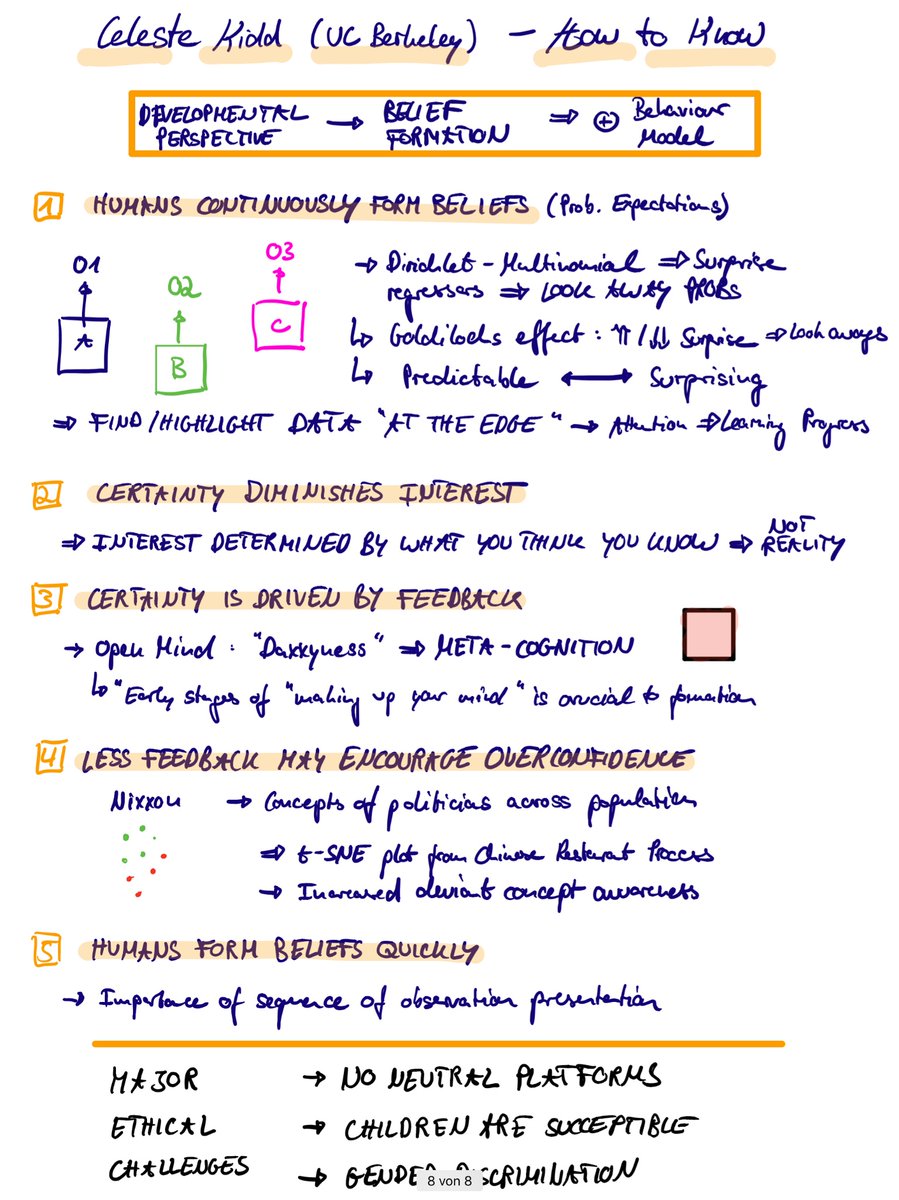 Celeste Kidd (UC Berkeley) - How to Know
DEVELOPMENTAL PERSPECTIVE → BELIEF FORMATION ⇒ ⊕ Behaviour Model
1 HUMANS CONTINUOUSLY FORM BELIEFS (Prob. Expectations)
O1 O2 O3
A B C
→ Dirichlet-Multinomial ⇒ Surprise
regressors ⇒ LOOK AWAY PROBS
↳ Goldilocks effect: ⇈/⇊ Surprise ⇒ Look aways
↳ Predictable ↔ Surprising
⇒ FIND/HIGHLIGHT DATA "AT THE EDGE" → Attention ⇒ Learning Progress
2 CERTAINTY DIMINISHES INTEREST
⇒ INTEREST DETERMINED BY WHAT YOU THINK YOU KNOW ⇒ NOT REALITY
3 CERTAINTY IS DRIVEN BY FEEDBACK
→ Open Mind: "Daxxyness" ⇒ META-COGNITION
↳ "Early stages of "making up your mind" is crucial to formation
4 LESS FEEDBACK MAY ENCOURAGE OVERCONFIDENCE
Nixxon → Concepts of politicians across population
⇒ t-SNE plot from Chinese Restaurant Process
→ Increased deviant concept awareness
5 HUMANS FORM BELIEFS QUICKLY
→ Importance of sequence of observation presentation
MAJOR → NO NEUTRAL PLATFORMS
ETHICAL → CHILDREN ARE SUCCEPTIBLE
CHALLENGES → GENDER DISCRIMINATION
8 von 8